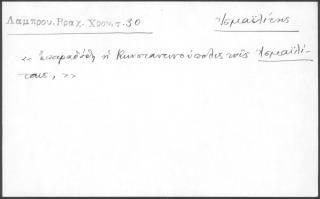 Λαμπρου. Βραχ. Χρον. σ. 30 Ἰσμαϊλίτης
«Ἐπαραδόθη ἡ Κωνσταντινούπολις τοῖς Ἰσμαϊλί-
ταις, »